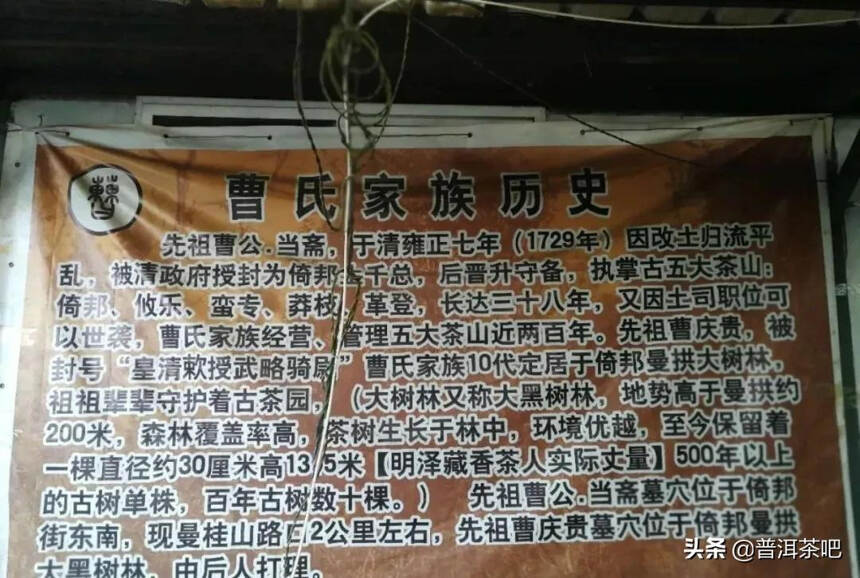 曹氏家族历史
先祖曹公.当斋，于清雍正七年（1729年）因改土归流平
乱，被清政府授封为倚邦土千总，后晋升守备，执掌古五大茶山：
倚邦、攸乐、蛮专、莽枝、革登，长达三十八年，又因土司职位可
以世袭，曹氏家族经营、管理五大茶山近两百年。先祖曹庆贵，被
封号“皇清欶授武略骑尉”曹氏家族10代定居于倚邦曼拱大树林，
祖祖辈辈守护着古茶园，（大树林又称大黑树林，地势高于曼拱约
200米，森林覆盖率高，茶树生长于林中，环境优越，至今保留着
一棵直径约30厘米高13.5米【明泽藏香茶人实际丈量】500年以上
的古树单株，百年古树数十棵。） 先祖曹公.当斋墓穴位于倚邦
街东南，现曼桂山路口2公里左右，先祖曹庆贵墓穴位于倚邦曼拱
大黑树林，由后人打理。
头条 @普洱茶吧